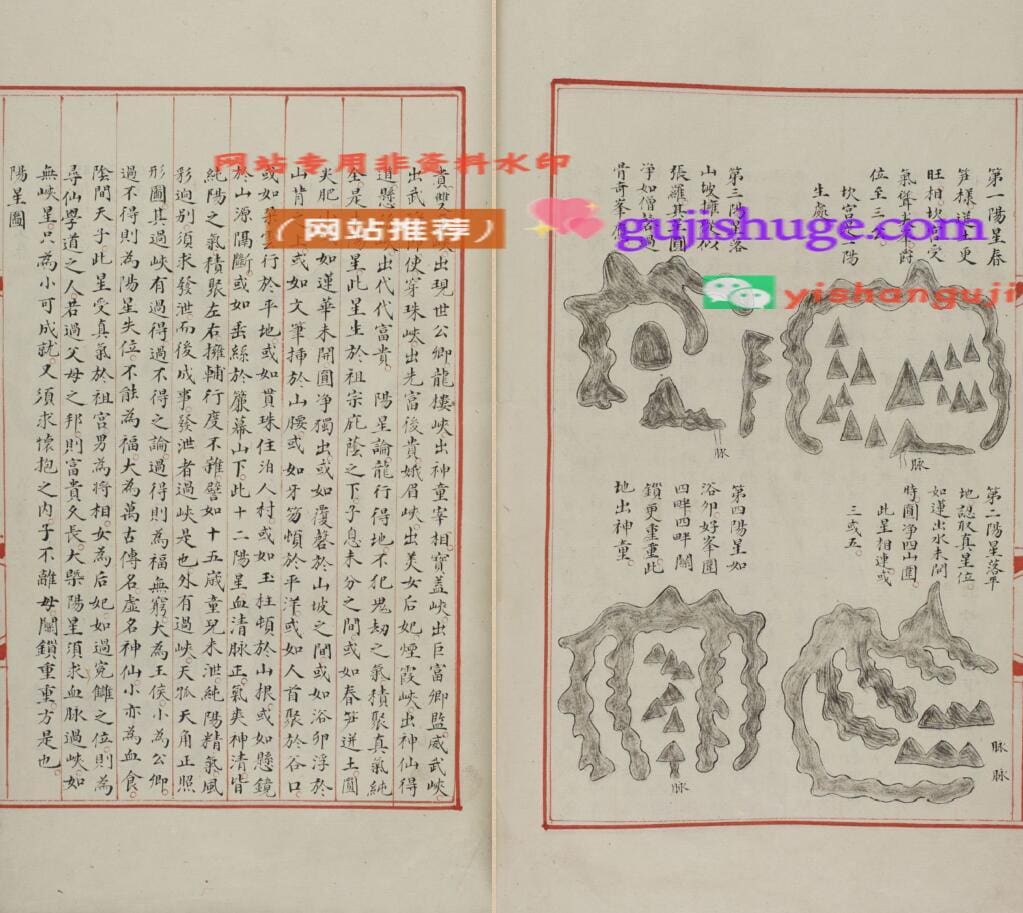 第一陽星春
笋樣迸土更
旺相坎宮受
氣聳
位至三
坎宮一陽
生處
第三陽星落
山坡擁
張羅其上圓
净如僧
骨奇峯
脉
脉
第二陽星落平
地認取真星位
如蓮出水未開
時圓净四山圍
此星相連或
三或五
第四陽星如
浴卵好峯圍
四畔四畔關
鎖更重重此
地出神童
脉
脉
脉
貴雙出現世公卿龍樓峽出神童宰相寶蓋峽出巨富卿監威武峽
出武使穿珠峽出先富後貴娥眉峽出美女后妃煙霞峽出神仙得
道懸出代代富貴 陽星論龍行得地不犯鬼劫之氣積聚真氣純
全是星此星生於祖宗庇蔭之下子息未分之間或如春笋迸土圓
尖肥如蓮華未開圓净獨出或如覆磬於山坡之間或如浴卵浮於
山背之或如文筆揷於山腰或如牙笏頓於平洋或如人首聚於谷口
或如行於平地或如貫珠住泊人村或如玉柱頓於山根或如懸鏡
於山源隔斷或如垂絲於簾幕山下此十二陽星血清脉正氣爽神清皆
純陽之氣積聚左右擁輔行度不雜譬如十五歲童兒未泄純陽精氣風
彩逈别須求發泄而後成事發泄者過峽是也外有過峽天弧天角正照
形圖其過峽有過得過不得之論過得則為福無窮大為王侯小為公卿
過不得則為陽星失位不能為福大為萬古傳名虛名神仙小亦為血食
陰間天子此星受真氣於祖宮男為將相女為后妃如過寃讎之位則為
尋仙學道之人若過父母之邦則富貴久長大槩陽星須求血脉過峽如
無峽星只為小可成就又須求懷抱之内子不離母關鎖重重方是也
陽星圖
网站专用非资料水印
（网站推荐）
gujishuge.com
yishanguji